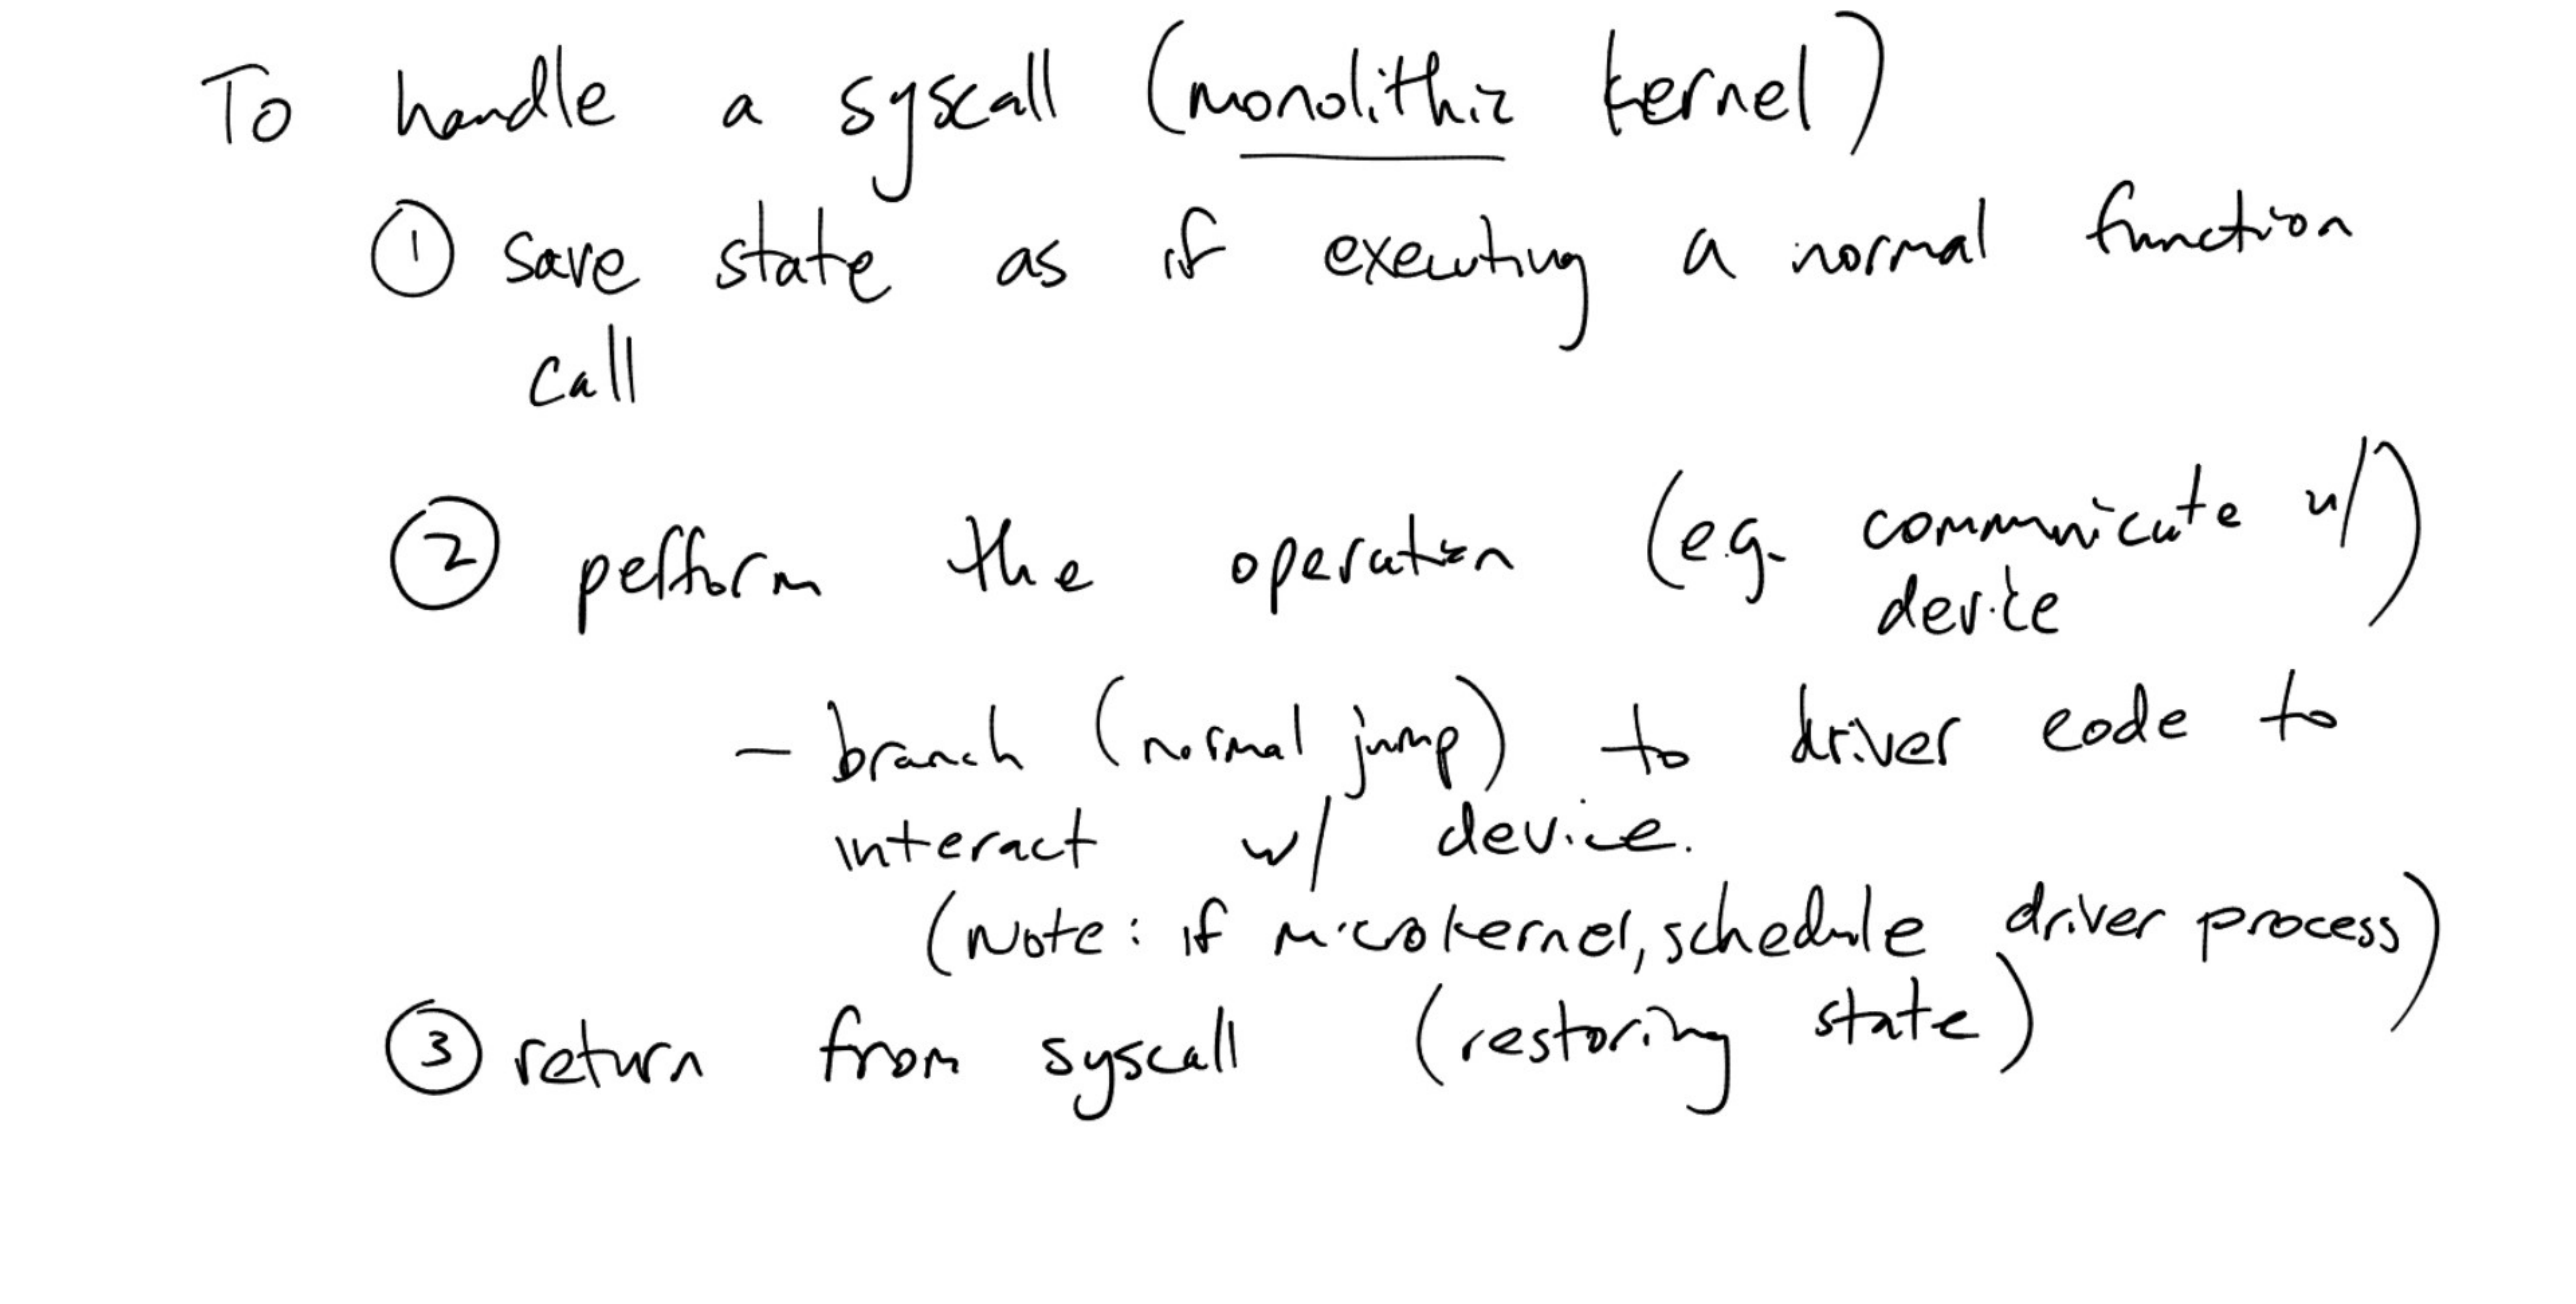 To handle a syscall (monolithic kernel)
① save state as if executing a normal function
call
② perform the operation (e.g. communicate w/
device)
- branch (normal jump) to driver code to
interact w/ device.
(Note: if microkernel, schedule driver process)
③ return from syscall (restoring state)